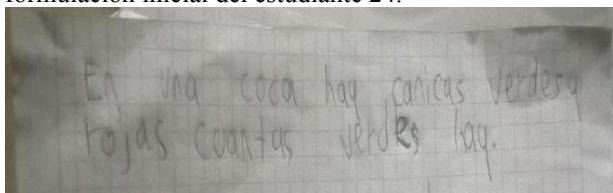 formulación inicial del estudiante 24.
En una coca hay canicas verdes y
rojas cuantas verdes hay.